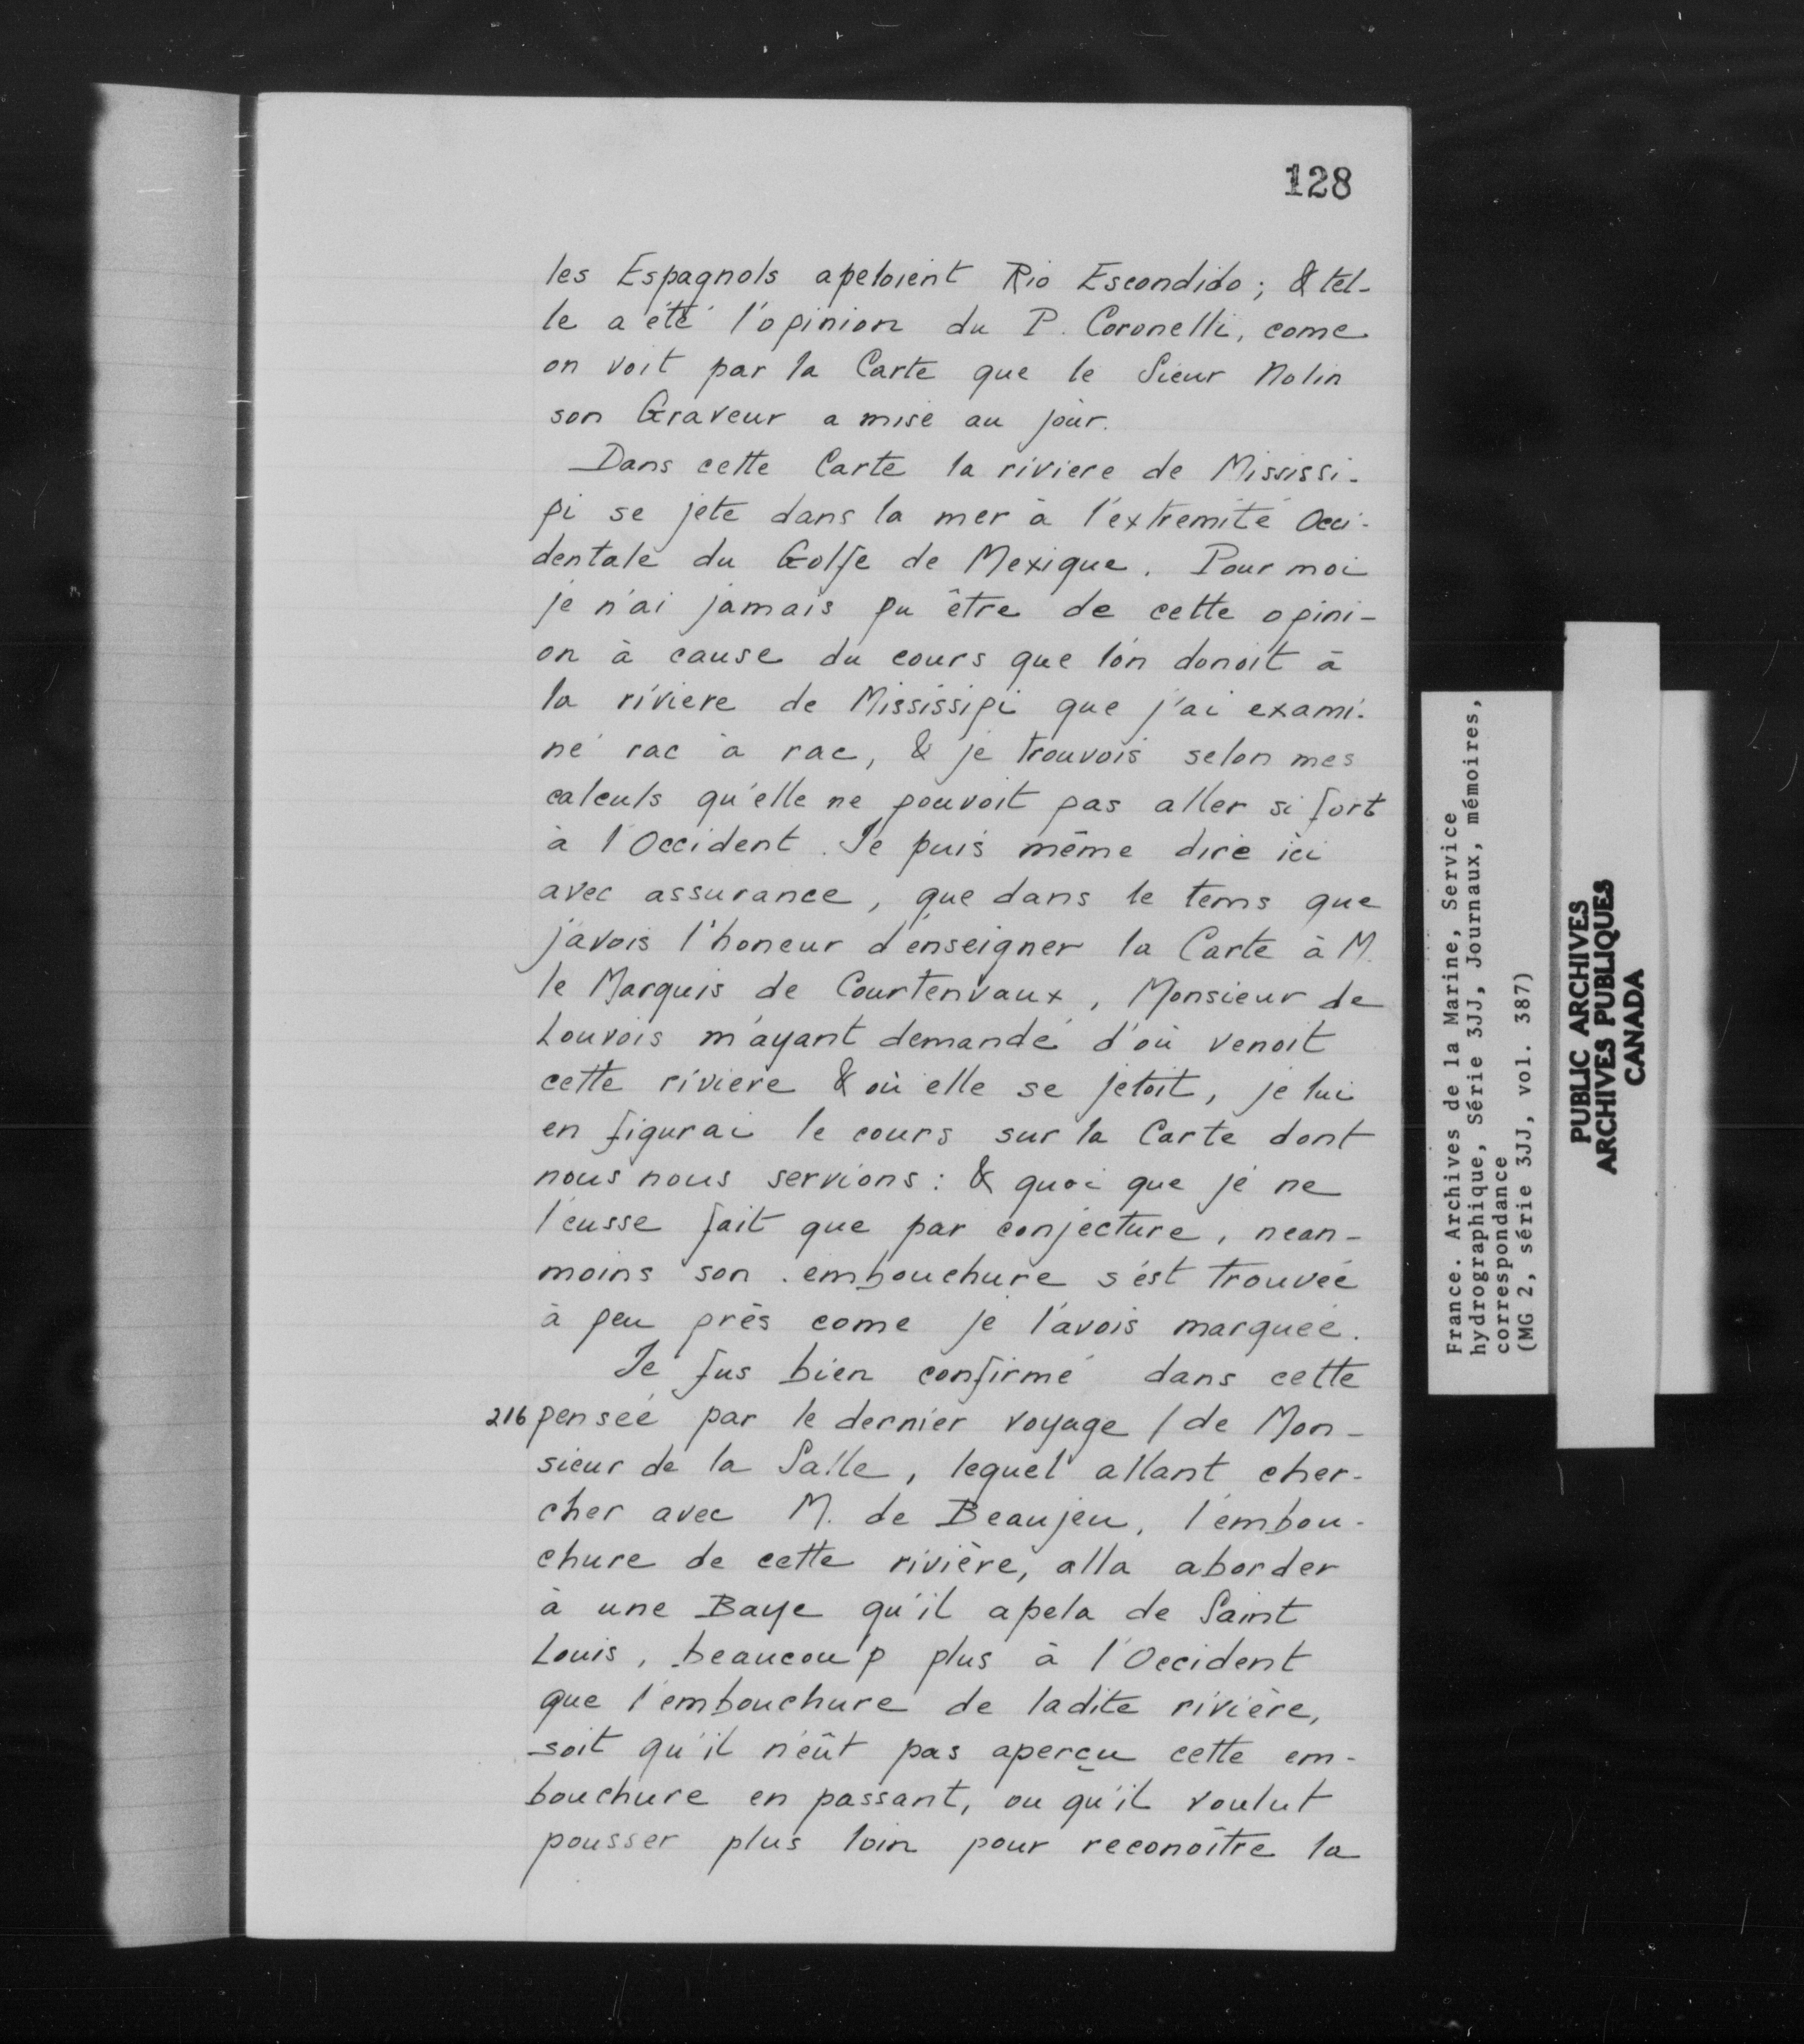 128
les Espagnols apeloient Rio Escondido; & tel-
le a été l'opinion du P. Coronelli, come
on voit par la Carte que le Sieur Nolin
son Graveur a mise au jour.
Dans cette Carte la riviere de Mississi-
pi se jete dans la mer à l'extremité Occi-
dentale du Golfe de Mexique. Pour moi
je n'ai jamais pu être de cette opini-
on à cause du cours que l'on donoit à
la riviere de Mississipi que j'ai exami-
né rac à rac, & je trouvois selon mes
calculs qu'elle ne pouvoit pas aller si fort
à l'Occident. Je puis même dire ici
avec assurance, que dans le tems que
j'avois l'honeur d'enseigner la Carte à M.
le Marquis de Courtenvaux, Monsieur de
Louvois m'ayant demandé d'où venoit
cette riviere & où elle se jetoit, je lui
en figurai le cours sur la Carte dont
nous nous servions: & quoi que je ne
l'eusse fait que par conjecture, nean-
moins son embouchure s'est trouvée
à peu près come je l'avois marquée.
Je fus bien confirmé dans cette
216 pensée par le dernier voyage / de Mon-
sieur de la Salle, lequel allant cher-
cher avec M. de Beaujeu, l'embou-
chure de cette rivière, alla aborder
à une Baye qu'il apela de Saint
Louis, beaucoup plus à l'Occident
que l'embouchure de ladite rivière,
soit qu'il n'eût pas aperçu cette em-
bouchure en passant, ou qu'il voulut
pousser plus loin pour reconoître la
France. Archives de la Marine, Service
hydrographique, Série 3JJ, Journaux, mémoires,
correspondance
(MG 2, série 3JJ, vol. 387)
PUBLIC ARCHIVES
ARCHIVES PUBLIQUES
CANADA